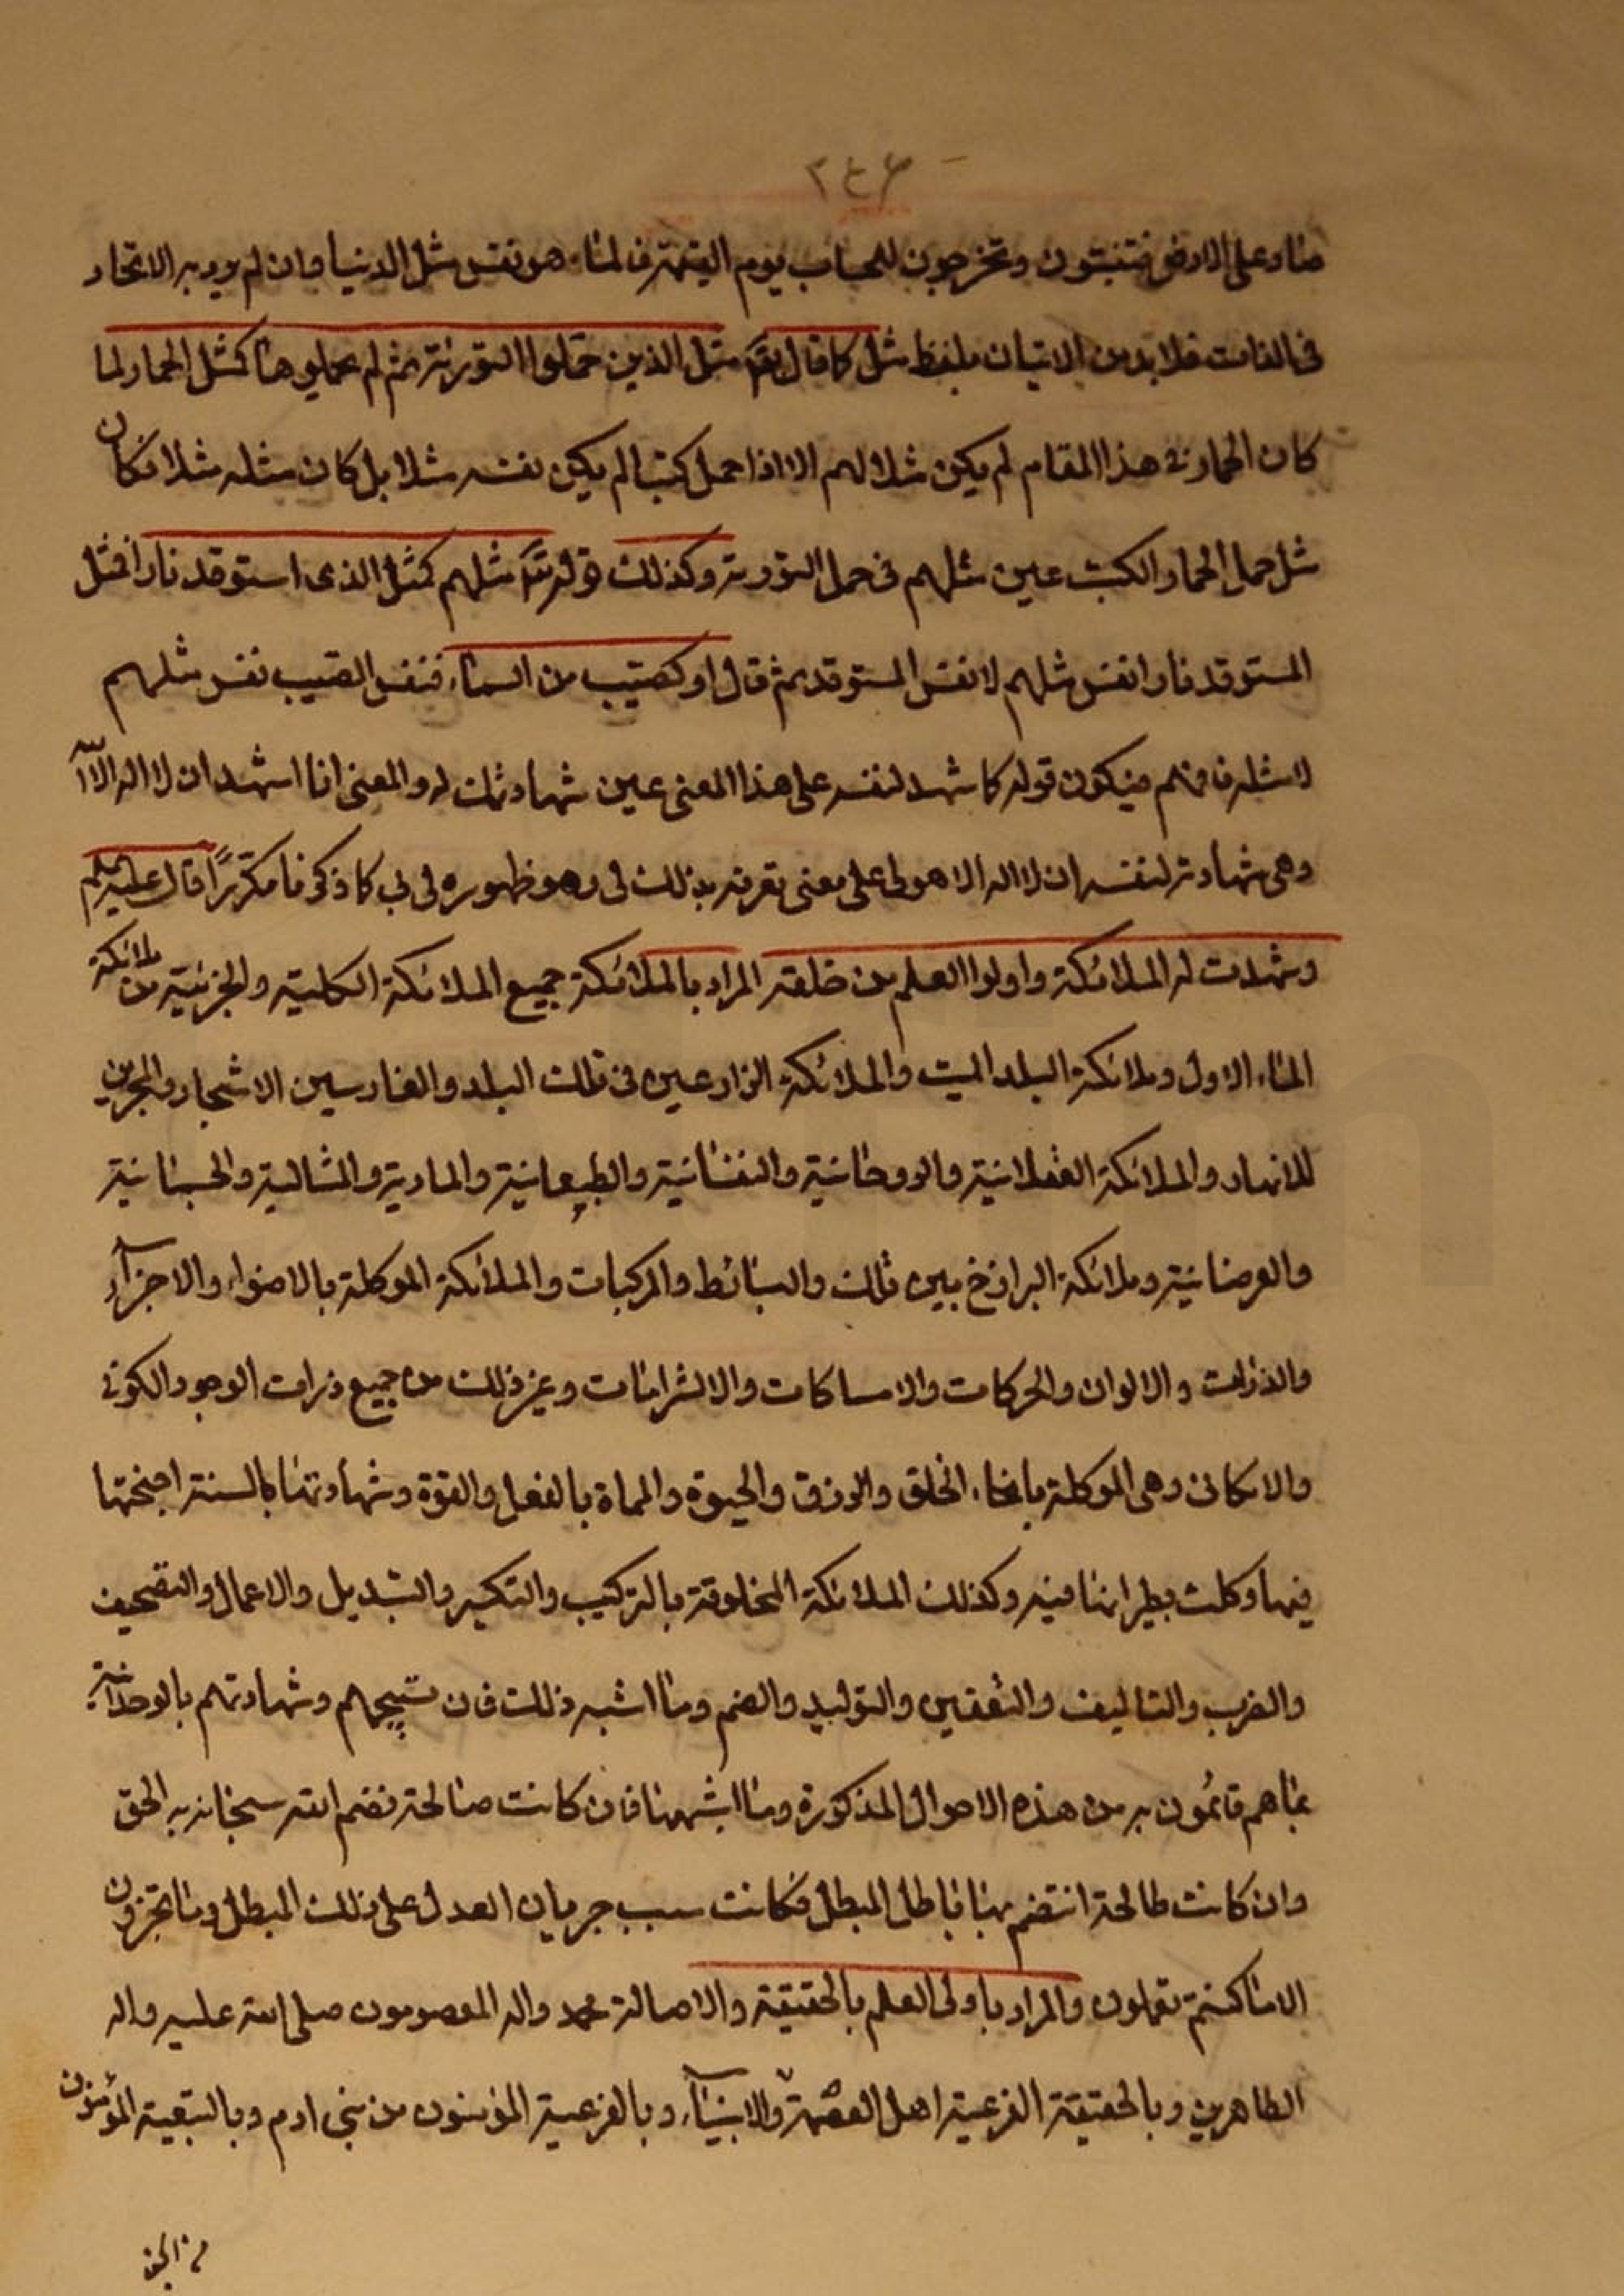 ٢٤٦
ماء على الارض فتنبتون وتخرجون للحساب يوم القيمة فالماء هو نفس مثل الدنيا وان لم يرد به الاتحاد
فى الذات فلا بد من الاتيان بلفظ مثل كما قال تع مثل الذين حملوا التورية ثم لم يحملوها كمثل الحمار لما
كان الحمار فى هذا المقام لم يكن مثلا لهم الا اذا حمل كتبا لم يكن نفسه مثلا بل كان مثله مثلا فكان
مثل حمل الحمار الكتب عين مثلهم فى حمل التورية وكذلك قوله تع مثلهم كمثل الذى استوقد نارا فمثل
المستوقد نارا نفس مثلهم لا نفس المستوقد ثم قال او كصيب من السماء فنفس الصيب نفس مثلهم
لا مثله فافهم فيكون قوله كما شهد لنفسه على هذا المعنى عين شهادتك له والمعنى انا اشهد ان لا اله الا الله
وهى شهادته لنفسه ان لا اله الا هو لى على معنى تعرفه بذلك لى وهو ظهوره لى بى كما ذكرنا مكررا قال عليه السلم
وشهدت له الملائكة واولوا العلم من خلقه المراد بالملائكة جميع الملائكة الكلية والجزئية من ملائكة
الماء الاول وملائكة البلد الميت والملائكة الزارعين فى تلك البلد والغارسين الاشجار والمجرين
للانهار والملائكة العقلانية والروحانية والنفسانية والطبيعانية والمادية والمثالية والجسمانية
والعرضانية وملائكة البرازخ بين تلك والبسائط والمركبات والملائكة الموكلة بالاضواء والاجزآء
والذرات والالوان والحركات والامساكات والاشراقات وغير ذلك من جميع ذرات الوجود الكونى
والامكانى وهى الموكلة بانحاء الخلق والرزق والحيوة والمماة بالفعل والقوة وشهادتها بالسنة اجنحتها
فيما وكلت بطيرانها فيه وكذلك الملائكة المخلوقة بالتركيب والتكسير والتبديل والاعمال والتصحيف
والضرب والتاليف والتعفين والتوليد والضم وما اشبه ذلك فان تسبيحهم وشهادتهم بالوحدانية
بما هم قائمون به من هذه الاحوال المذكورة وما اشبهها فان كانت صالحة نضم الله سبحانه به الحق
وان كانت طالحة انتضم بها باطل المبطل فكانت سبب جريان العدل على ذلك المبطل وما تجزون
الا ما كنتم تعملون والمراد باولى العلم بالحقيقة والاصالة محمد واله المعصومون صلى الله عليه واله
الطاهرين وبالحقيقة الفرعية اهل العصمة والانبيآء وبالفرعية المؤمنون من بنى ادم وبالتبعية المؤمنون
من الجن